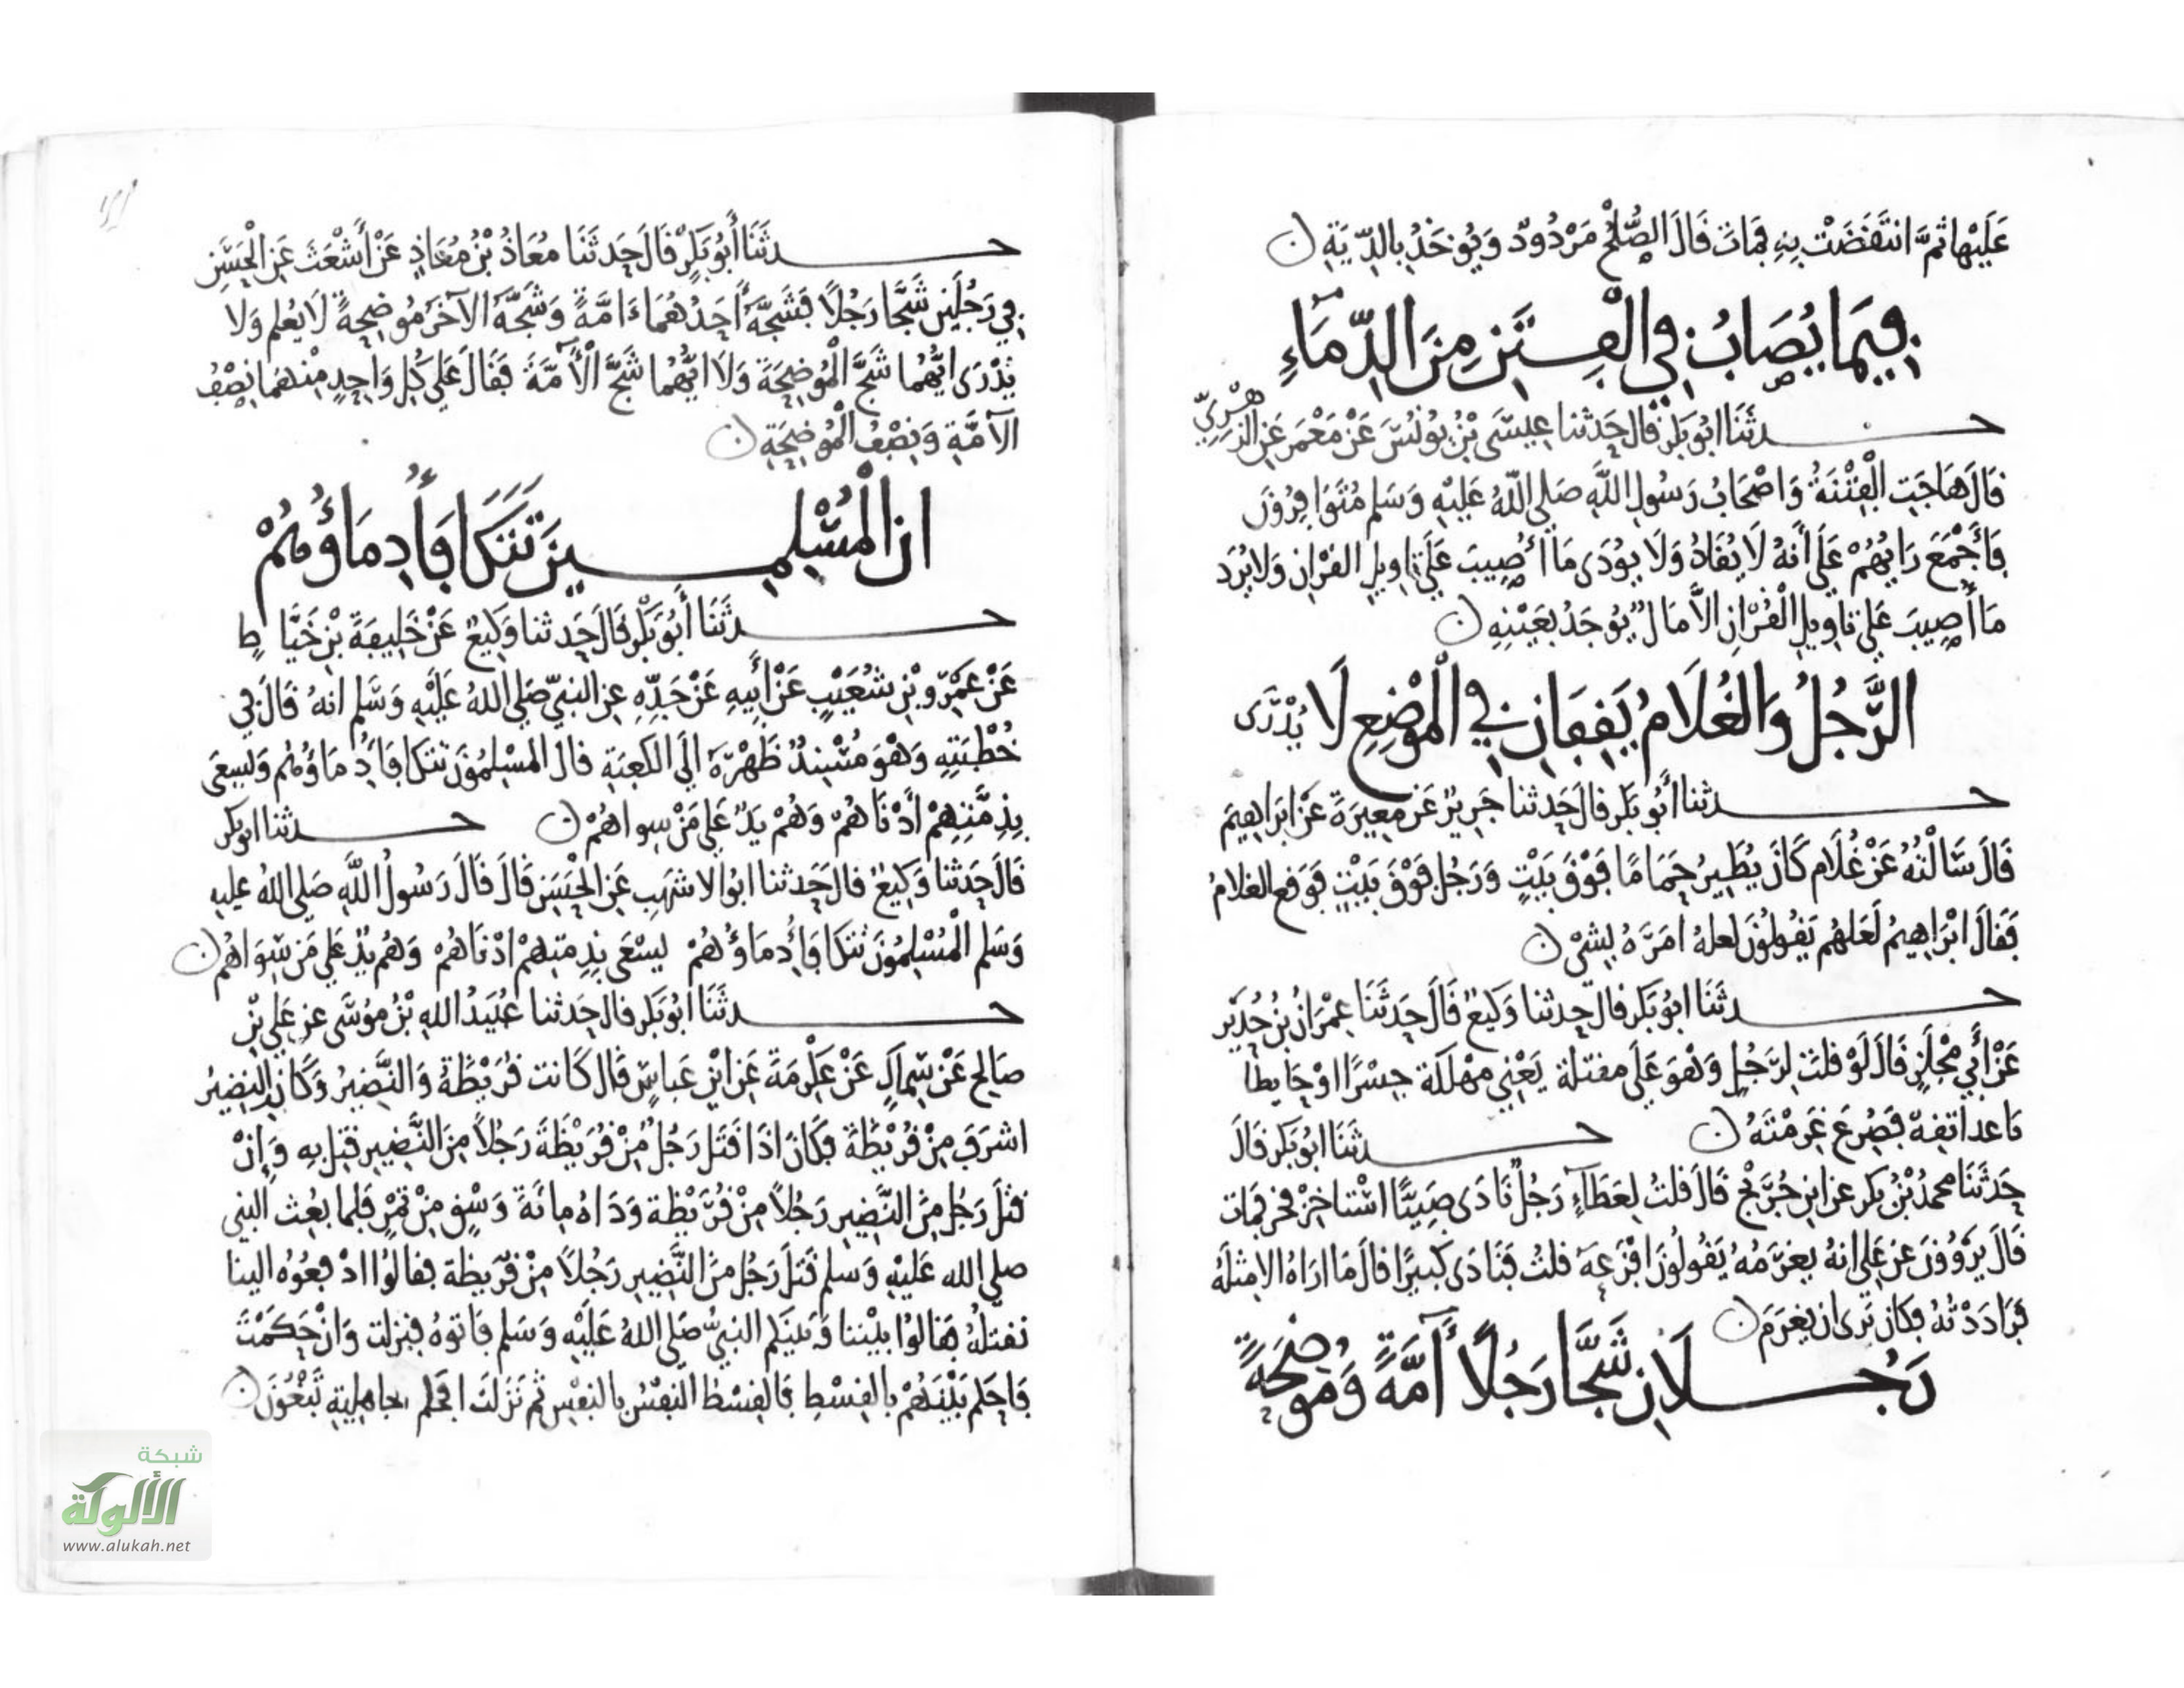 عَلَيْهَا ثُمَّ انتَقَضَتْ بِهِ فَمَاتَ قَالَ الصُّلْحُ مَرْدُودٌ وَيُوخَذُ بِالدِّيَةِ ن
فِيمَا يُصَابُ فِي الْفِتَنِ مِنَ الدِّمَاءِ
حدثَنَا ابُو بَكرٍ قال حَدثنا عِيسَى بْنُ يُونُسَ عَنْ مَعْمَرٍ عَنِ الزهْرِيِّ
قَالَ هَاجَتِ الْفِتْنَةُ وَاصْحَابُ رَسُولِ اللَّهِ صَلى اللهُ عَلَيْهِ وَسَلم مُتَوَافِرُونَ
فَأَجْمَعَ رَايُهُمْ عَلَى أَنهُ لَا يُقَادُ وَلَا يُودَى مَا أُصِيبَ عَلَى تاوِيلِ القرْانِ وَلا يُرَد
مَا أُصِيبَ عَلى تاوِيلِ الْقُرْانِ الاَّ مَالٌ يُوجَدُ بِعَيْنِهِ ن
الرَّجُلُ وَالغُلَامُ يَقِفَانِ فِي الْمَوْضِعِ لَا يُدْرَى
حدثنا أَبُو بَكر قال حَدثنا جَرِيرٌ عَن مغِيرَةَ عَنْ ابرَاهِيمَ
قَالَ سَالْتُهُ عَنْ غُلَام كَانَ يُطَيِرُ حَمَامًا فَوْقَ بَيْتٍ وَرَجُل فَوْقَ بَيْتٍ فَوَقع الغلامُ
فَقَالَ ابْرَاهِيمُ لَعَلهُم يَقُولُونَ لعلهُ امَرَهُ بِشَيْ ن
حدثَنَا ابُو بَكر قال حدثنا وَكِيعٌ قَالَ حَدثَنَا عِمْرَانُ بْنُ حُدَيْرٍ
عَنْ أَبِي مِجْلَزٍ قَالَ لَوْ قلتَ لِرَجُلٍ وَهوَ عَلَى مقتلة يَعْنِي مهْلَكَة جِسْرًا اوْ حَايطا
باعد اتقِهْ فَصُرِعَ غَرِمْتَهُ ن حدثَنَا ابُو بَكر قَالَ
حَدثَنَا محمدُ بْنُ بكر عن ابنِ جُرَيْجٍ قَالَ قلتُ لِعَطَاءٍ رَجُلٌ نَادَى صَبِيًّا اسْتاخِرْ فخر فَمَات
قَالَ يَرْوُونَ عن عَلي انهُ يغرمُهُ يَقُولُونَ افْزَعَهُ قلتُ فَنَادَى كَبِيرًا قالَ مَا ارَاهُ الا مِثلَهُ
فَرَادَدْتُهُ فكانَ يَرَى ان يغرَمَ ن
رَجُلَانِ شَجَّا رَجُلًا آمَّةً وَمُوضِحَةً
حدثَنَا أَبُو بَكرٍ قَالَ حَدثَنَا مُعَاذُ بْنُ مُعَاذٍ عَنْ أَشْعَثَ عَنِ الْحَسَنِ
فِي رَجُلَينِ شَجَّا رَجُلًا فَشَجَّهُ أَحَدُهُمَا ءَامَّةً وَشَجَّهُ الآخَرُ مُوضِحَةً لَا يُعْلم وَلا
يُدْرَى ايُّهُما شَجَّ الْمُوضِحَةَ وَلَا ايُّهُما شَجَّ الْآمَّةَ فَقَالَ عَلى كُلِ وَاحِدٍ مِنْهُمَا نِصْفُ
الآمَّةِ وَنِصْفُ الْمُوضِحَةِ ن
ان الْمُسْلِمِينَ تَتَكَافَأُ دِمَاؤُهُمْ
حدثَنَا أَبُو بَكْرٍ قَالَ حَدثنا وَكِيعٌ عَنْ خَلِيفَةَ بْنِ خَيَّاطٍ
عَنْ عَمْرِو بْنِ شُعَيْبٍ عَنْ أَبِيهِ عَنْ جَدِّهِ عن النبيِّ صَلى اللهُ عَلَيْهِ وَسَلم انهُ قَالَ فِي
خُطْبَتِهِ وَهْوَ مُسْنِدٌ ظَهْرَهُ الَى الكَعْبَةِ قال المسْلِمُونَ تتكَافَأُ دِمَاؤُهُم وَيسعَى
بِذِمَّتِهِمْ أَدْنَاهُمْ وَهُمْ يَدٌ عَلَى مَنْ سِوَاهُمْ ن حدثنا ابو بكر
قَالَ حَدثنا وَكِيعٌ قالَ حَدثنا ابُو الاشهَبِ عَنِ الْحَسَنِ قالَ قالَ رَسُولُ اللَّهِ صَلى اللهُ عليهِ
وَسَلم الْمُسْلِمُونَ تتكَافَأُ دِمَاؤُهُمْ يَسْعَى بِذِمتِهِمْ ادْنَاهُمْ وَهُم يدٌ عَلى مَن سِوَاهُم ن
حدثَنَا ابُو بَكر قال حَدثنا عُبَيدُ اللهِ بْنُ مُوسَى عن عَلي بْنِ
صَالِحٍ عَنْ سِمَاكٍ عَنْ عِكْرمَةَ عَنِ ابْنِ عَباسٍ قَالَ كَانت قُرَيْظَةُ وَالنَّضِيرُ وَكَانَ النضِيرُ
اشرَفَ مِنْ قُرَيْظَةَ فكَانَ اذَا قَتَل رَجُلٌ مِنْ قُرَيْظَةَ رَجُلًا مِنَ النَّضِيرِ قتِلَ بِهِ وَإِنْ
قتلَ رَجُل مِنَ النَّضِيرِ رَجُلًا مِنْ قُرَيْظة وَدَاهُ مِائَةَ وَسْقٍ مِنْ تمْرٍ فَلما بُعِثَ النبي
صلى الله عَليْهِ وَسلم قَتَلَ رَجُل مِنَ النَّضِيرِ رَجُلًا مِنْ قُرَيظة فقالوُا ادْفعُوهُ الينا
نقتلْهُ فقالوُا بيْننا وَبَينَكم النبيُّ صَلى اللهُ عَلَيْهِ وَسَلم فاتوهُ فنزلت وَانْ حَكَمْتَ
فَاحكم بَيْنَهُمْ بِالقِسْطِ فالقِسْطُ النفْسُ بالنفْسِ ثم نَزلَتْ افحكم الجاهِليةِ تَبْغُونَ ن
شبكة
الألوكة
www.alukah.net